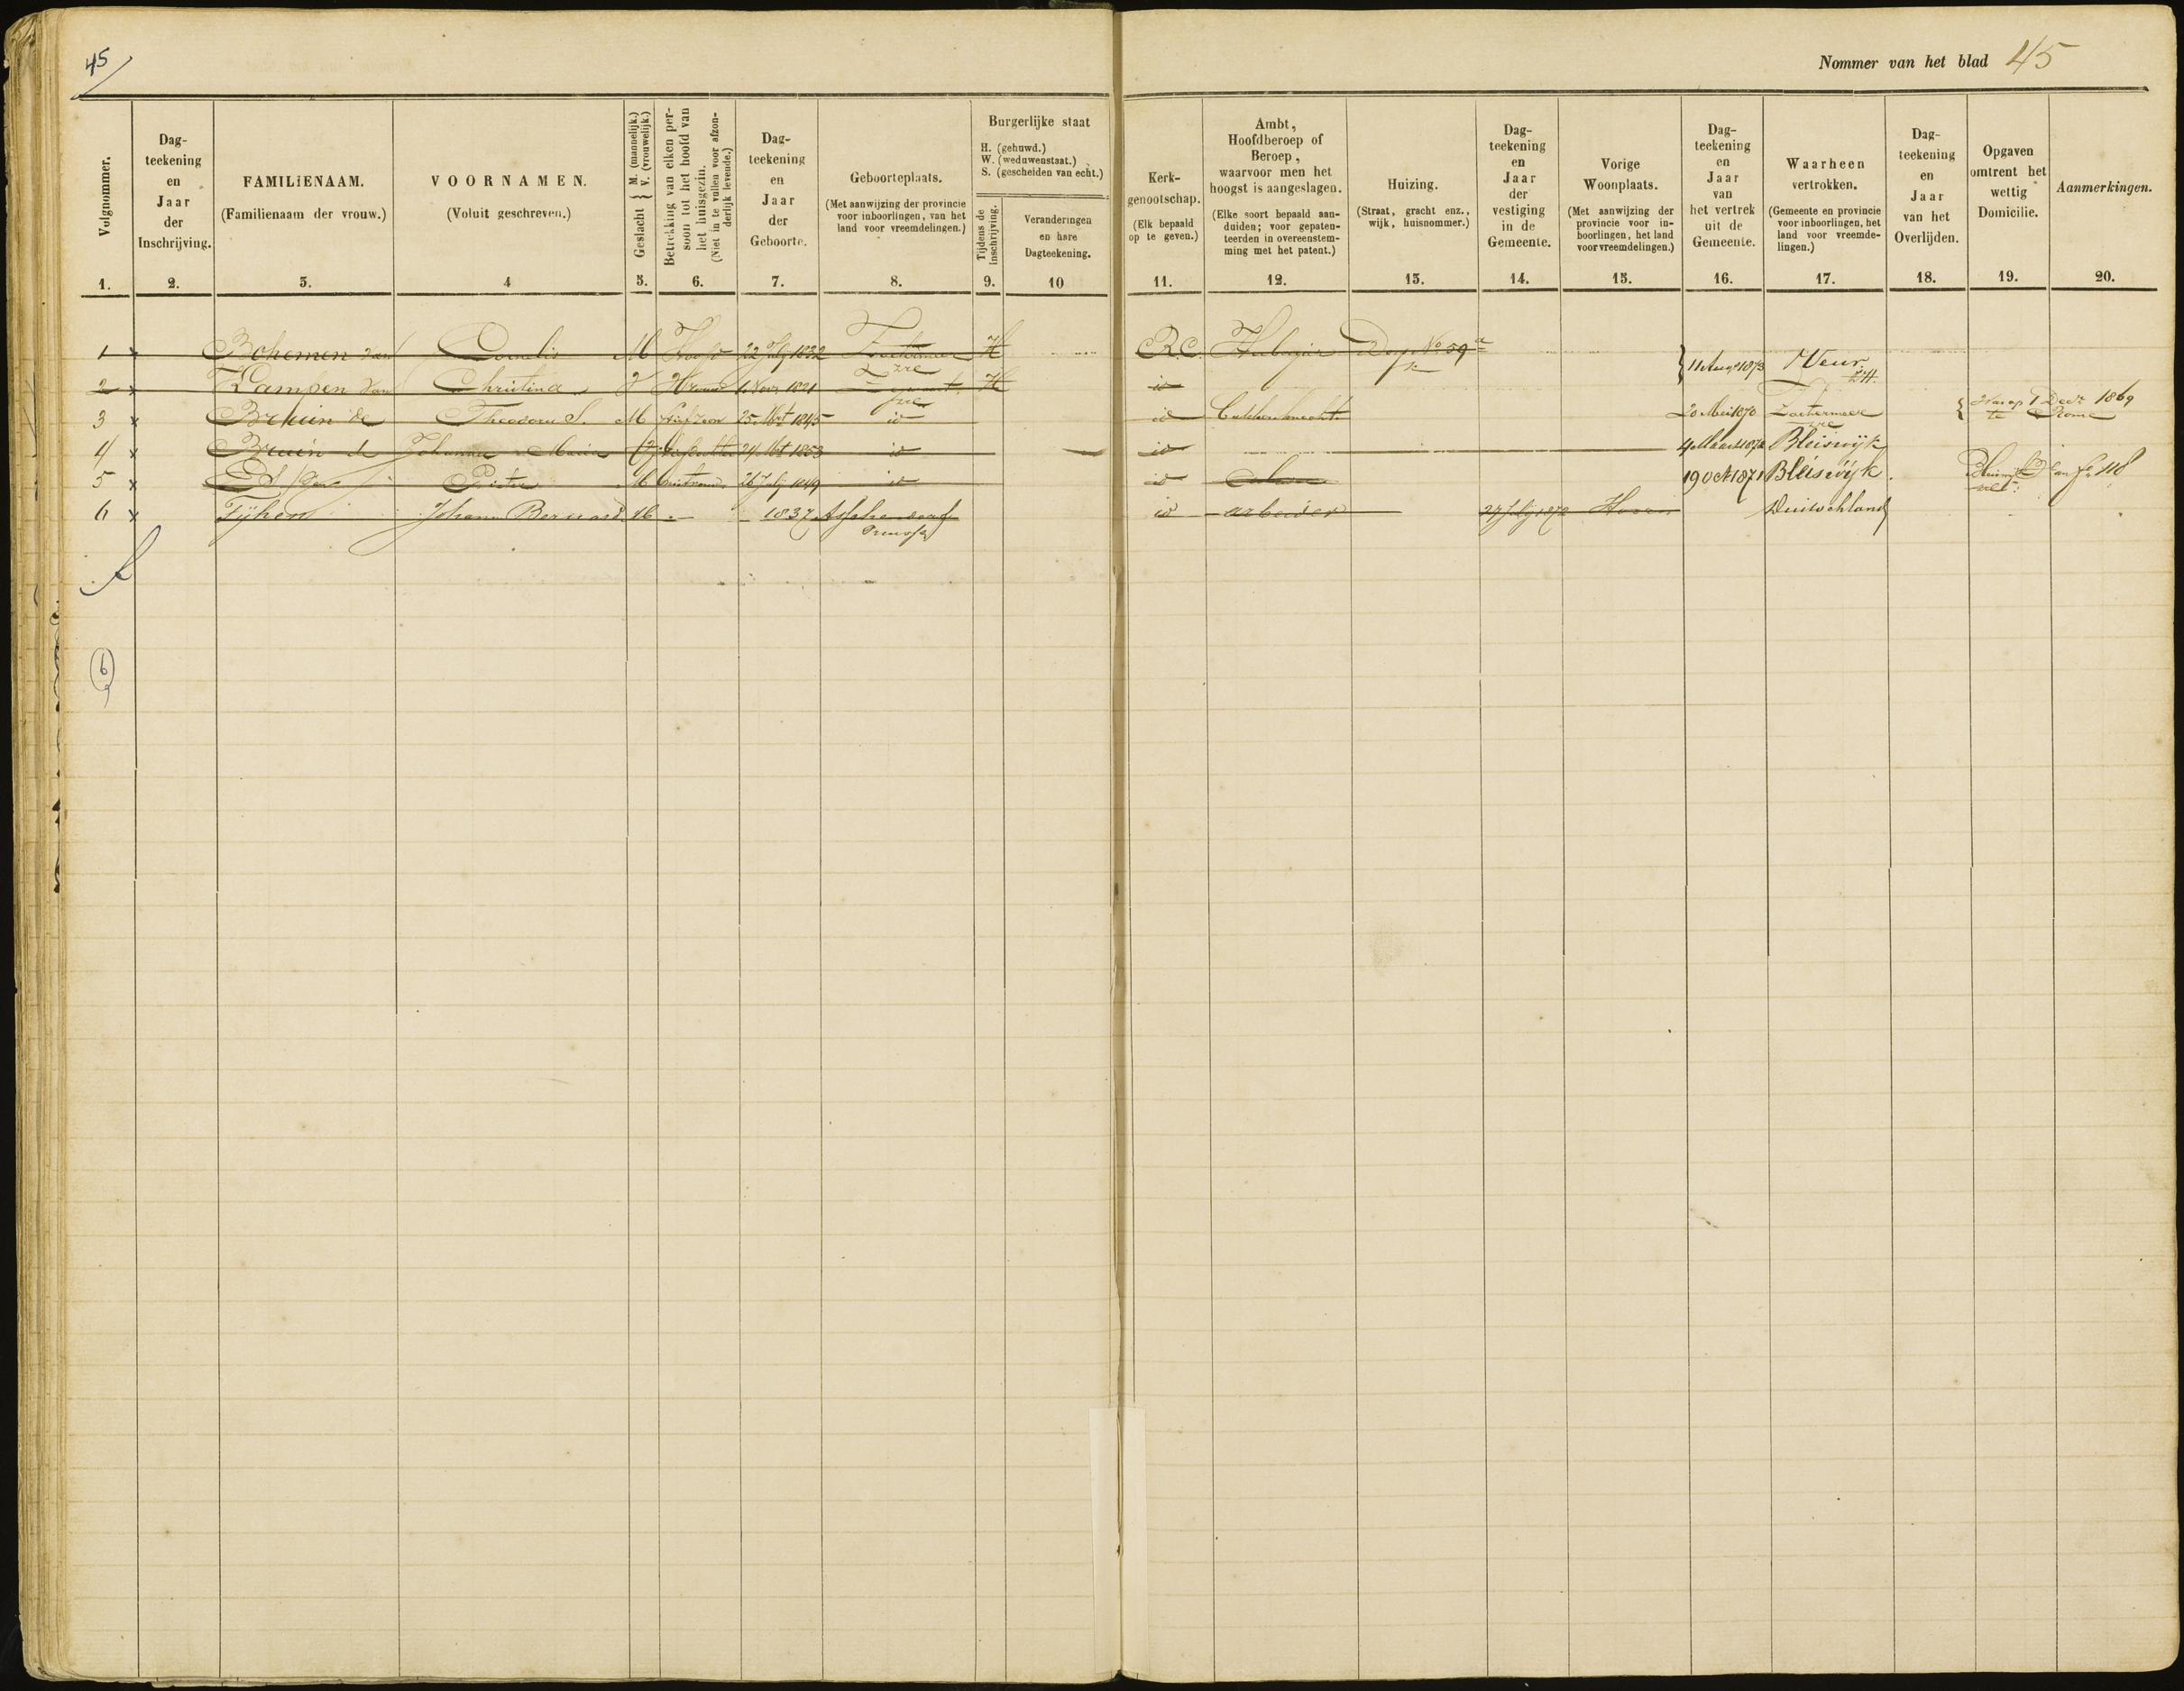 45
Nommer van het blad 45
Volgnommer.
1.
Dag-
teekening
en
Jaar
der
Inschrijving.
2.
FAMILIENAAM.
(Familienaam der vrouw.)
3.
VOORNAMEN.
(Voluit geschreven.)
4
Geslacht { M. (mannelijk.)
V. (vrouwelijk.)
5.
Betrekking van elken per-
soon tot het hoofd van
het huisgezin.
(Niet in te vullen voor afzon-
derlijk levende.)
6.
Dag-
teekening
en
Jaar
der
Geboorte.
7.
Geboorteplaats.
(Met aanwijzing der provincie
voor inboorlingen, van het
land voor vreemdelingen.)
8.
Burgerlijke staat
H. (gehuwd.)
W. (weduwenstaat.)
S. (gescheiden van echt.)
Tijdens de
Inschrijving.
9.
Veranderingen
en hare
Dagteekening.
10
Kerk-
genootschap.
(Elk bepaald
op te geven.)
11.
Ambt,
Hoofdberoep of
Beroep,
waarvoor men het
hoogst is aangeslagen.
(Elke soort bepaald aan-
duiden; voor gepaten-
teerden in overeenstem-
ming met het patent.)
12.
Huizing.
(Straat, gracht enz.,
wijk, huisnommer.)
13.
Dag-
teekening
en
Jaar
der
vestiging
in de
Gemeente.
14.
Vorige
Woonplaats.
(Met aanwijzing der
provincie voor in-
boorlingen, het land
voor vreemdelingen.)
15.
Dag-
teekening
en
Jaar
van
het vertrek
uit de
Gemeente.
16.
Waarheen
vertrokken.
(Gemeente en provincie
voor inboorlingen, het
land voor vreemde-
lingen.)
17.
Dag-
teekening
en
Jaar
van het
Overlijden.
18.
Opgaven
omtrent het
wettig
Domicilie.
19.
Aanmerkingen.
20.
1 x Bohemen van Cornelis M Hoofd 22 July 1832 Zoetermeer H R.C. Dorp No 59a 11 Aug 1873 Veur
Z.H.
2 x Kampen van Christina V Vrouw 1 Nov 1821 H id
3 x Bruin de Theodorus S. M Stiefzoon 25 Oct 1845 id id Bakkersknecht 20 Mei 1870 Zoetermeer Was op 1 Decr 1869
te Rome
4 x Bruin de Johanna Maria V 24 Oct 1853 id id 4 Maart 1872 Bleiswijk
5 x Pieter M 26 July 1849 id id 19 Oct 1871 Bleiswijk 118
6 x Tijhen Johann Bernard M 1837 id arbeider 27 July 1872 Duitschland
6